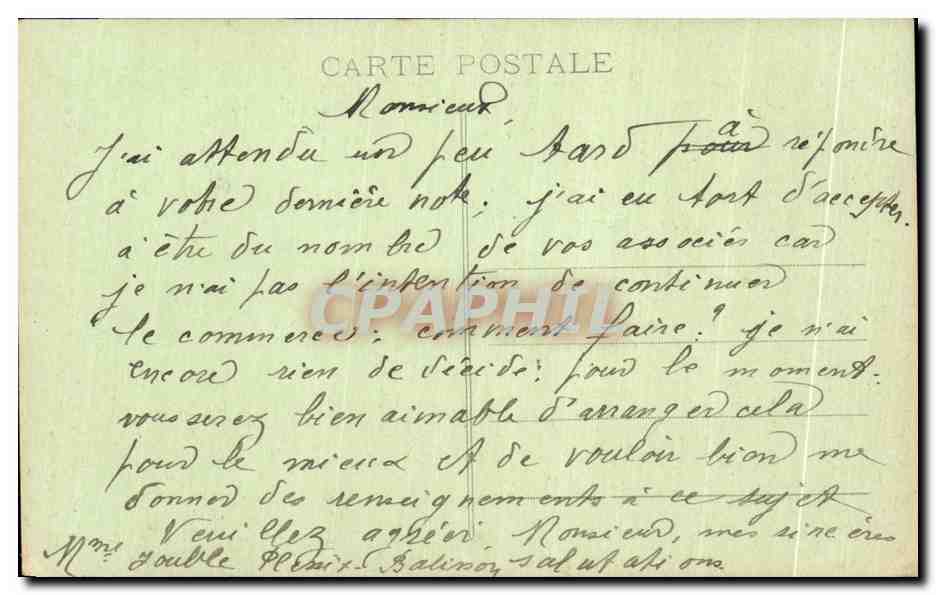 CARTE POSTALE
Monsieur,
J'ai attendu un peu tard pour à répondre
à votre dernière note; j'ai eu tort d'accepter
à être du nombre de vos associés car
je n'ai pas l'intention de continuer
CPAPHIL
le commerce; comment faire? je n'ai
encore rien de décidé; pour le moment.
vous serez bien aimable d'arranger cela
pour le mieux et de vouloir bien me
donner des renseignements à ce sujet
Veuillez agréer Monsieur, mes sincères
Mme salutations